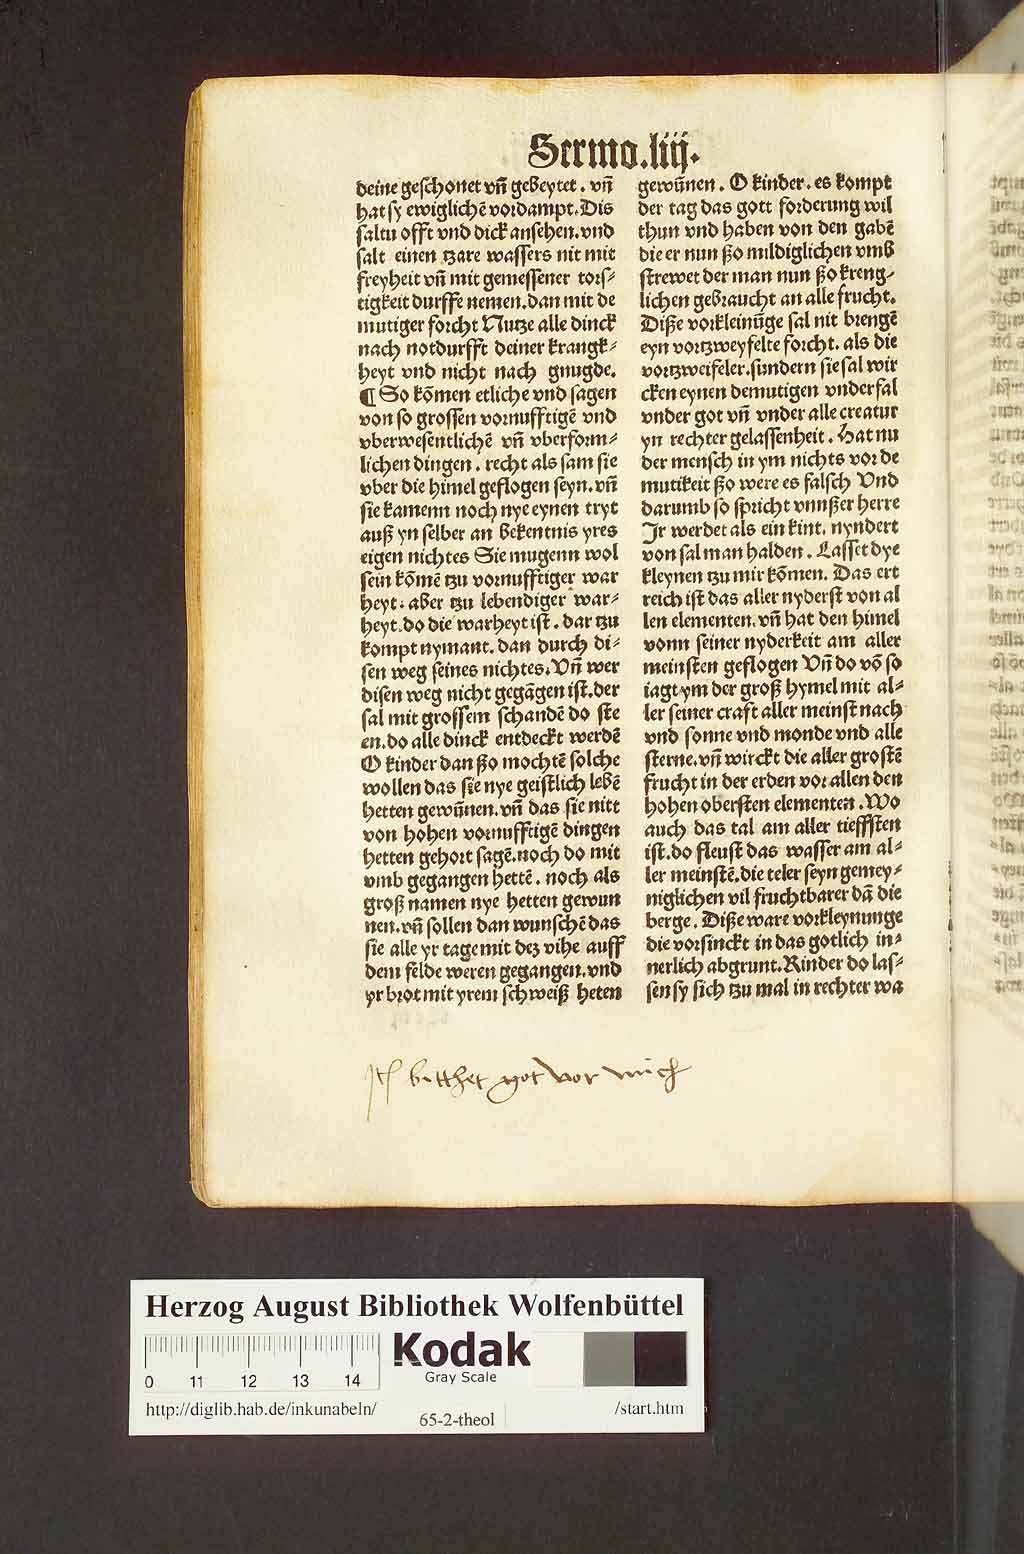 Sermo.liij.
deine geschonet vñ gebeytet. vñ
hat sy ewiglichē vordampt. Dis
saltu offt vnd dick ansehen. vnd
salt einen tzare wassers nit mit
freyheit vñ mit gemessener tors⸗
tigkeit durffe nemen. dan mit de
mutiger forcht Nutze alle dinck
nach notdurfft deiner krangk⸗
heyt vnd nicht nach gnugde.
¶ So kōmen etliche vnd sagen
von so grossen vornufftigē vnd
vberwesentlichē vñ vberform⸗
lichen dingen. recht als sam sie
vber die himel geflogen seyn. vñ
sie kamenn noch nye eynen tryt
auß yn selber an bekentnis yres
eigen nichtes Sie mugenn wol
sein kōmē tzu vornufftiger war
heyt. aber tzu lebendiger war⸗
heyt. do die warheyt ist. dar tzu
kompt nymant. dan durch di⸗
sen weg seines nichtes. Vñ wer
disen weg nicht gegāgen ist. der
sal mit grossem schandē do ste
en. do alle dinck entdeckt werdē
O kinder dan ßo mochtē solche
wollen das sie nye geistlich lebē
hetten gewūnen. vñ das sie nitt
von hohen vornufftigē dingen
hetten gehort sagē. noch do mit
vmb gegangen hettē. noch als
groß namen nye hetten gewun
nen. vñ sollen dan wunschē das
sie alle yr tage mit dez vihe auff
dem felde weren gegangen. vnd
yr brot mit yrem schweiß heten
gewūnen. O kinder. es kompt
der tag das gott forderung wil
thun vnd haben von den gabē
die er nun ßo mildiglichen vmb
strewet der man nun ßo kreng⸗
lichen gebraucht an alle frucht.
Diße vorkleinūge sal nit brengē
eyn vortzweyfelte forcht. als die
vortzweifeler. sundern sie sal wir
cken eynen demutigen vnderfal
vnder got vñ vnder alle creatur
yn rechter gelassenheit. Hat nu
der mensch in ym nichts vor de
mutikeit ßo were es falsch Vnd
darumb so spricht vnnßer herre
Ir werdet als ein kint. nyndert
von sal man halden. Lasset dye
kleynen tzu mir kōmen. Das ert
reich ist das aller nyderst von al
len elementen. vñ hat den himel
vonn seiner nyderkeit am aller
meinsten geflogen Vñ do vō so
iagt ym der groß hymel mit al⸗
ler seiner craft aller meinst nach
vnd sonne vnd monde vnd alle
sterne. vñ wirckt die aller grostē
frucht in der erden vor allen den
hohen obersten elementen. Wo
auch das tal am aller tieffsten
ist. do fleust das wasser am al⸗
ler meinstē. die teler seyn gemey⸗
niglichen vil fruchtbarer dā die
berge. Diße ware vorkleynunge
die vorsinckt in das gotlich in⸗
nerlich abgrunt. Kinder do las⸗
sen sy sich tzu mal in rechter wa
bitthet got vor mich
Herzog August Bibliothek Wolfenbüttel
Kodak
Gray Scale
0 11 12 13 14
http://diglib.hab.de/inkunabeln/ 65-2-theol /start.htm